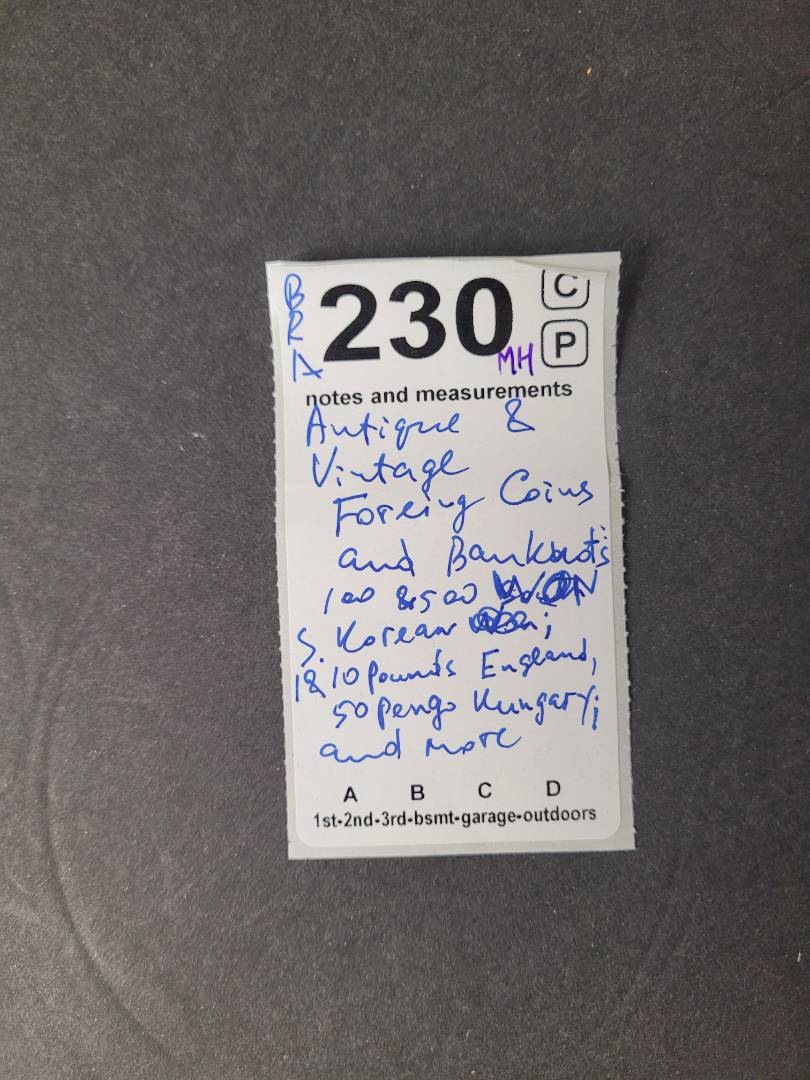 B
R
A
230
C
P
MH
notes and measurements
Antique &
Vintage
Foreing Coins
and Banknots
100 & 500 WON
S. Korean ;
1& 10 Pounds England,
50 Pengo Hungary;
and more
A B C D
1st-2nd-3rd-bsmt-garage-outdoors